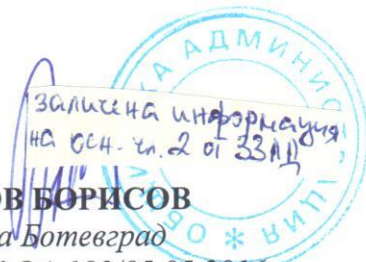 АДМИНИС
ЦИЯ
заличена информация
на осн. чл. 2 от ЗЗЛД
ОВ БОРИСОВ
а Ботевград